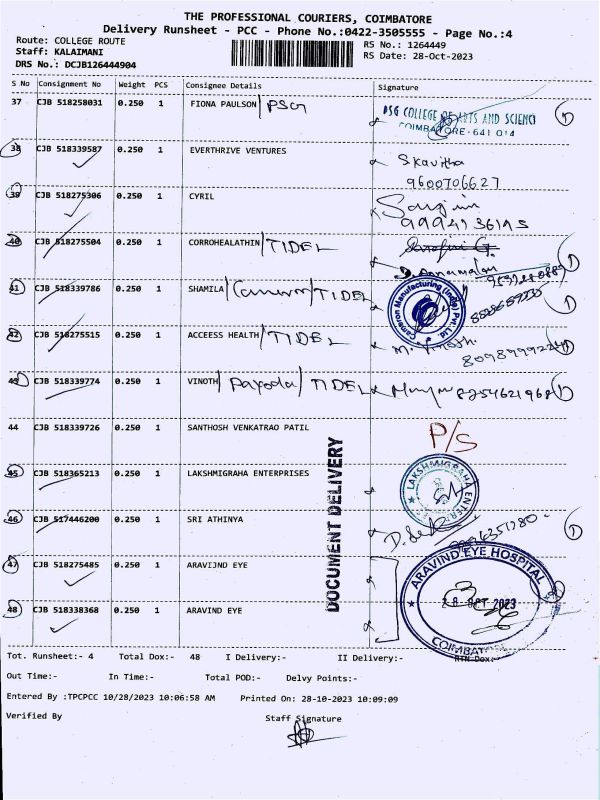 THE PROFESSIONAL COURIERS, COIMBATORE
Delivery Runsheet - PCC - Phone No.:0422-3505555 - Page No.:4
Route: COLLEGE ROUTE
RS No.: 1264449
Staff: KALAIMANI
RS Date: 28-Oct-2023
DRS No.: DCJB126444904
S No Consignment No Weight PCS Consignee Details Signature
37 CJB 518258031 0.250 1 FIONA PAULSON / PSG
PSG COLLEGE OF ARTS AND SCIENCE
COIMBATORE - 641 014
38 CJB 518339587 0.250 1 EVERTHRIVE VENTURES
S Kavitha
9600706627
39 CJB 518275306 0.250 1 CYRIL
40 CJB 518275504 0.250 1 CORROHEALATHIN / TIDEL
41 CJB 518339786 0.250 1 SHAMILA / Cameron / TIDEL
Cameron Manufacturing (India) Pvt. Ltd.
42 CJB 518275515 0.250 1 ACCEESS HEALTH / TIDEL
43 CJB 518339774 0.250 1 VINOTH / Payoda / TIDEL 8754621968
44 CJB 518339726 0.250 1 SANTHOSH VENKATRAO PATIL P/S
45 CJB 518365213 0.250 1 LAKSHMIGRAHA ENTERPRISES
LAKSHMIGRAHA ENTER
DOCUMENT DELIVERY
46 CJB 517446200 0.250 1 SRI ATHINYA
47 CJB 518275485 1 ARAVIJND EYE
0.250
ARAVIND EYE HOSPITAL
28 OCT 2023
COIMBAT
48 CJB 518338368 0.250 1 ARAVIND EYE
Tot. Runsheet:- 4 Total Dox:- 48 I Delivery:- II Delivery:- RTN Dox:-
Out Time:- In Time:- Total POD:- Delvy Points:-
Entered By :TPCPCC 10/28/2023 10:06:58 AM Printed On: 28-10-2023 10:09:09
Verified By Staff Signature